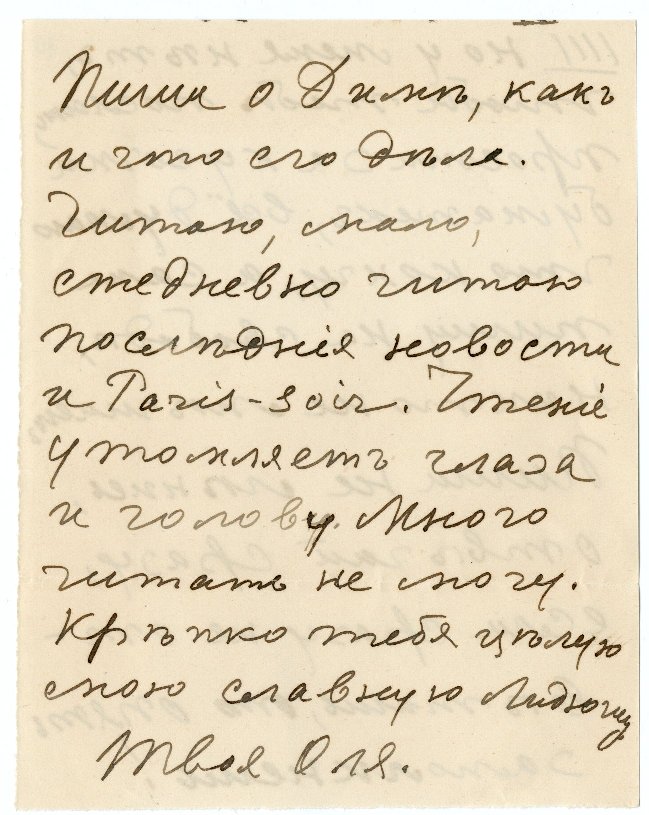 Пиши о Димѣ, какъ
и что его дѣла.
Читаю, мало,
ежедневно читаю
послѣднія новости
и Paris-soir. Чтеніе
утомляетъ глаза
и голову. Много
читать не могу.
Крѣпко тебя цѣлую
мою славную Лидючу
Твоя Оля.